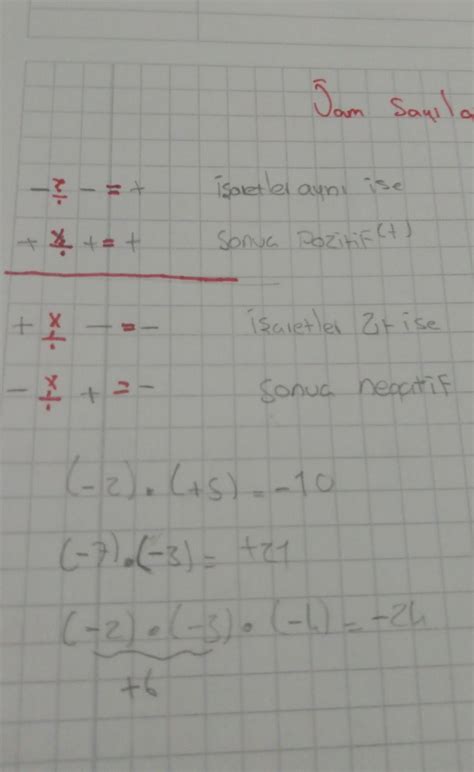 Tam Sayıla
- x ÷ - = + işaretler aynı ise
+ x ÷ + = + Sonuç Pozitif (+)
+ x ÷ - = - işaretler Zıt ise
- x ÷ + = - Sonuç negatif
(-2) . (+5) = -10
(-7) . (-3) = +21
(-2) . (-3) . (-4) = -24
+6